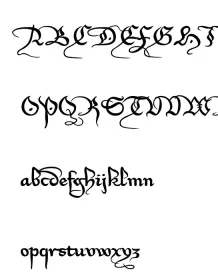 ABCDEFGHI
OPQRSTUVW
abcdefghijklmn
opqrstuvwxyz